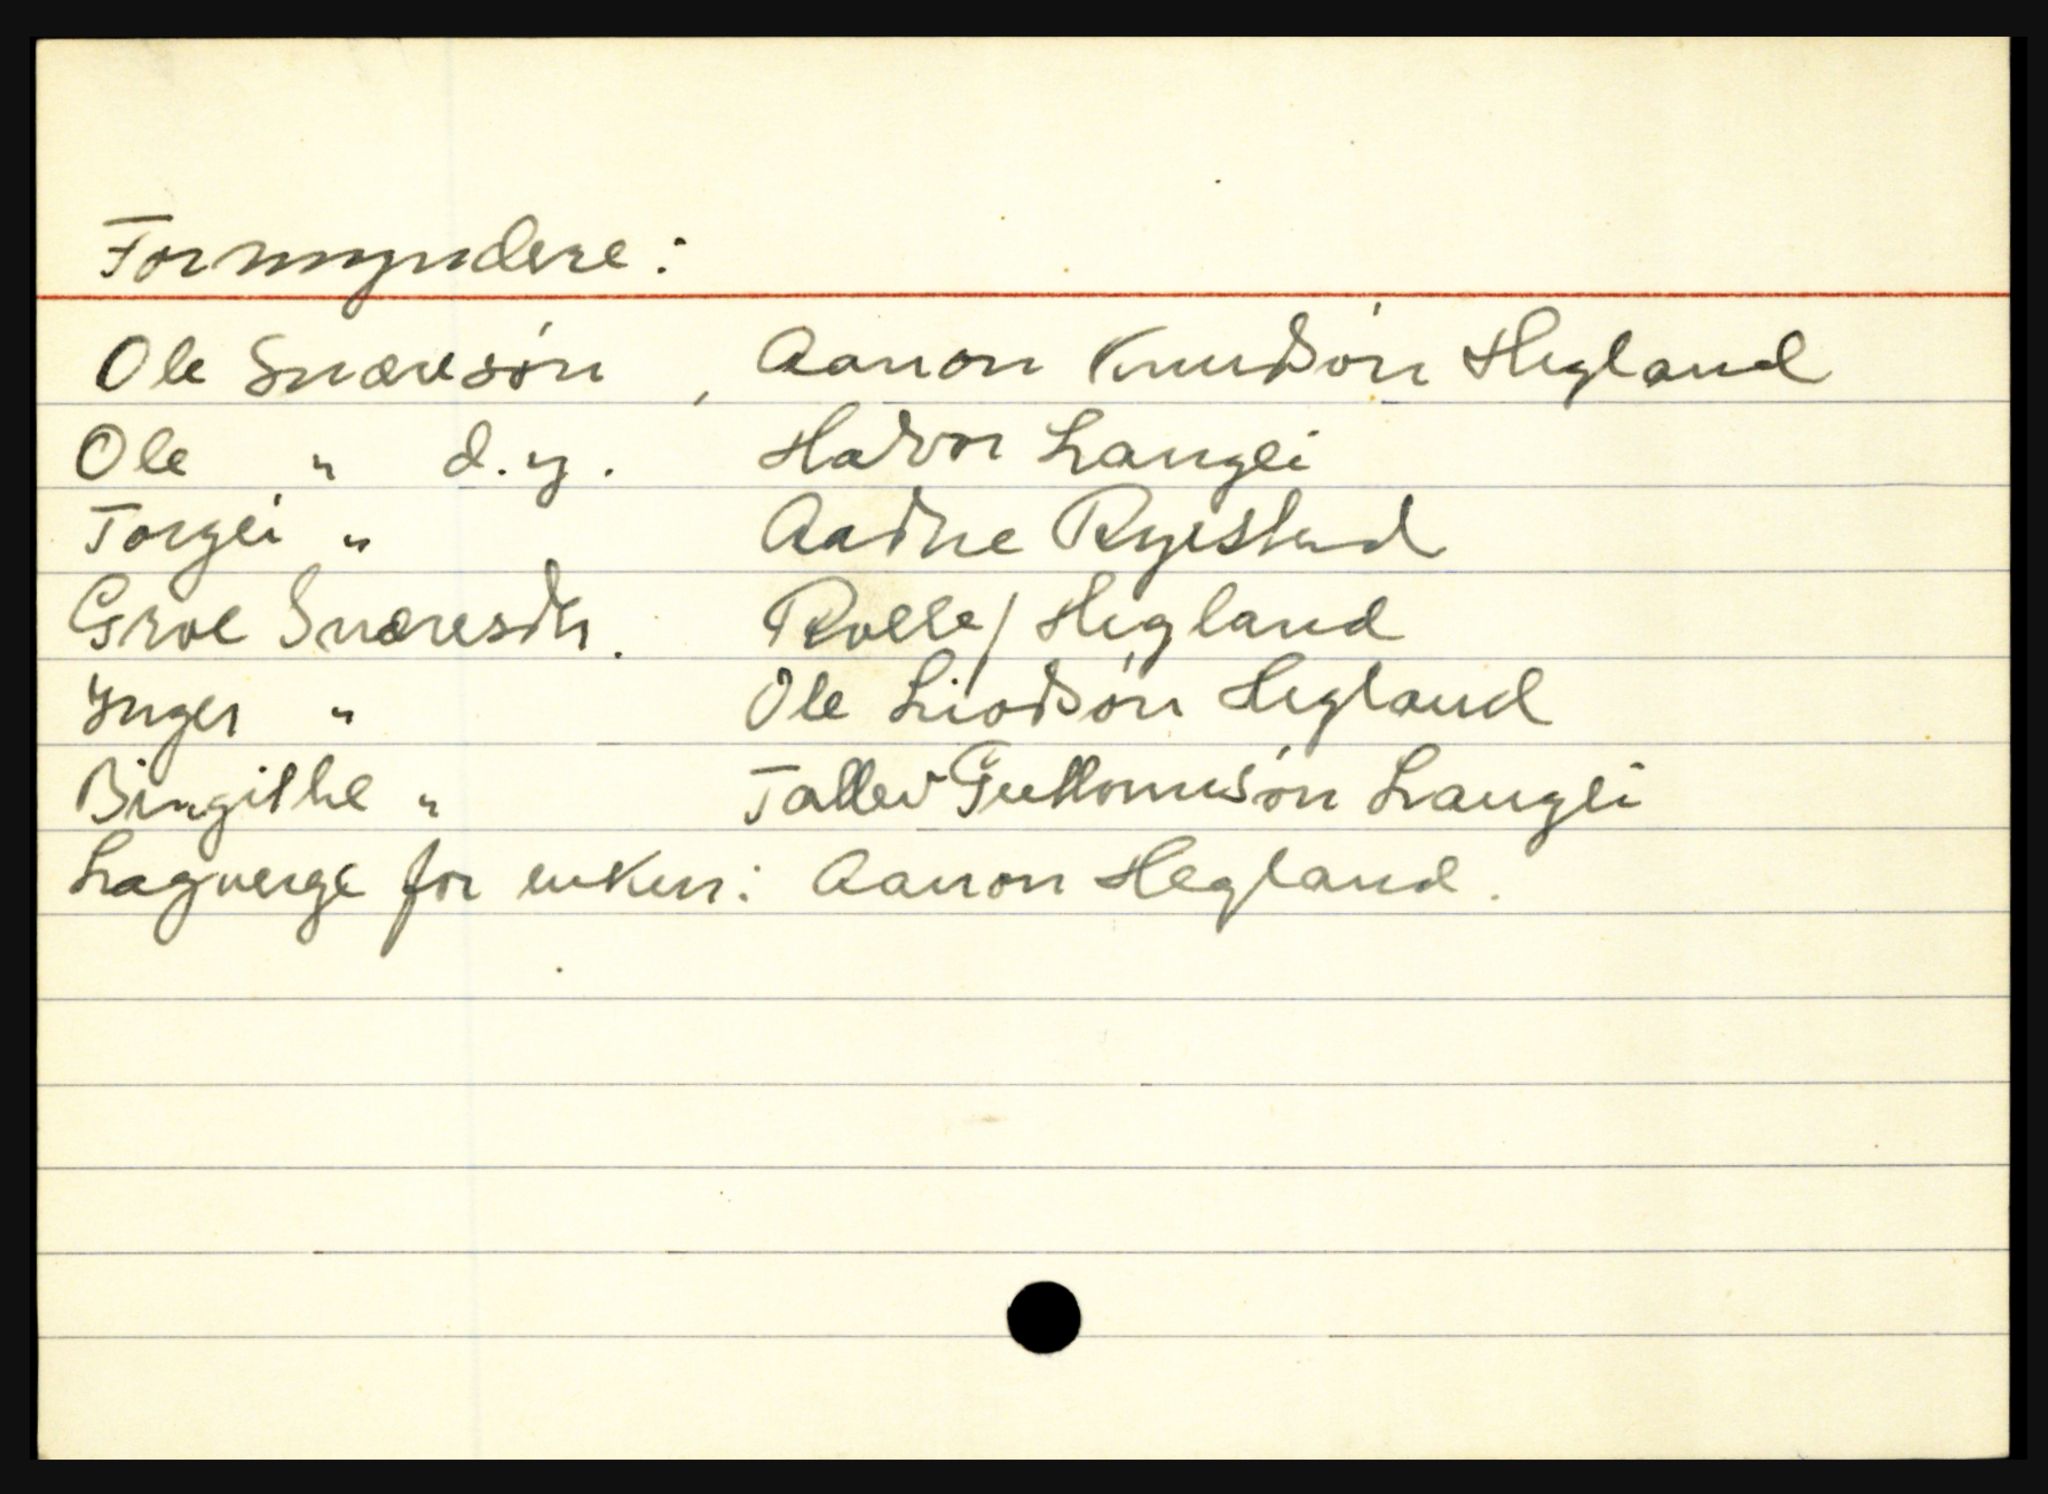 Formyndere:
Ole Snæresøn, Aanon Knudsøn Hegland
Ole " d.y. Halvor Langei
Torgei " Aadne Rygestad
Groe Snæresdtr. Rolle/Hegland
Ynger " Ole Liodsøn Hegland
Birgithe " Tallev Guttormsøn Langei
Lagverge for enken: Aanon Hegland.